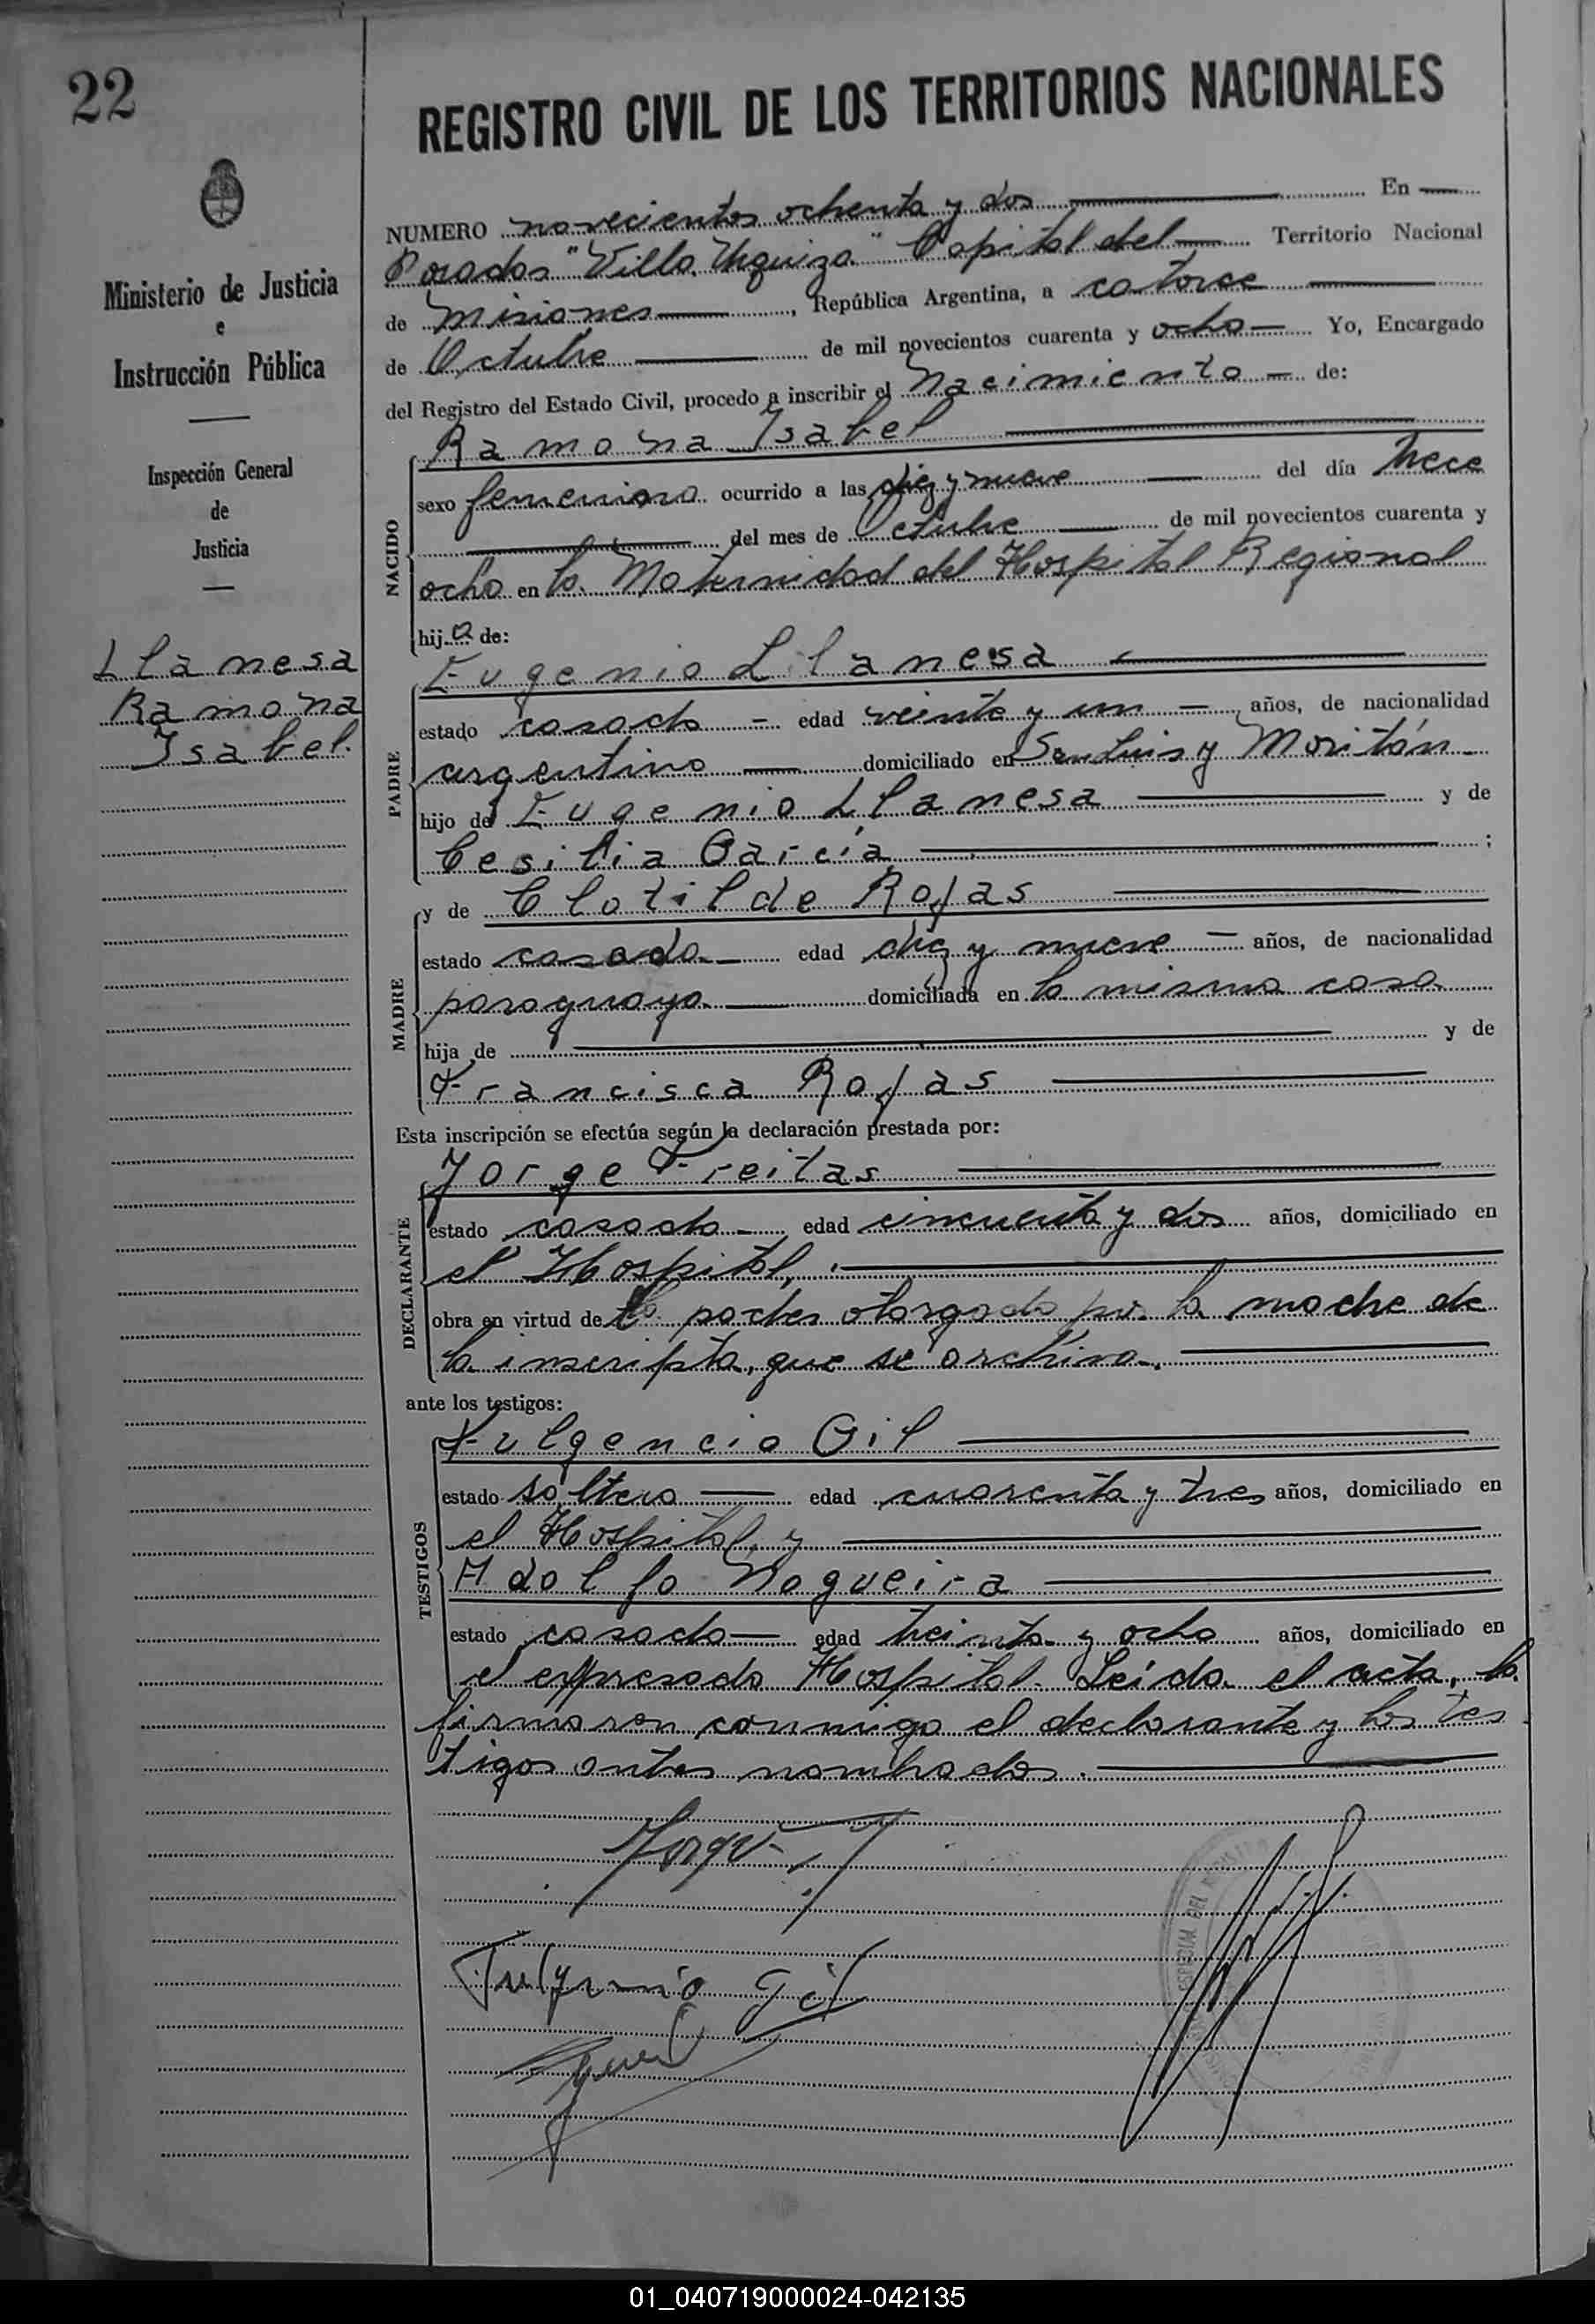 22
REGISTRO CIVIL DE LOS TERRITORIOS NACIONALES
Ministerio de Justicia
e
Instrucción Pública
Inspección General
de
Justicia
Llanesa
Ramona
Isabel.
NUMERO novecientos ochenta y dos En
Posadas "Villa Urquiza" Capital del Territorio Nacional
de Misiones, República Argentina, a catorce
de Octubre de mil novecientos cuarenta y ocho Yo, Encargado
del Registro del Estado Civil, procedo a inscribir el Nacimiento de:
NACIDO
Ramona Isabel
sexo femenino ocurrido a las diez y nueve del día trece
del mes de Octubre de mil novecientos cuarenta y
ocho en la Maternidad del Hospital Regional
hija de:
PADRE
Eugenio Llanesa
estado casado edad veinte y un años, de nacionalidad
argentino domiciliado en San Luis y Moritán
hijo de Eugenio Llanesa y de
Cesilia García ;
MADRE
y de Clotilde Rojas
estado casada edad diez y nueve años, de nacionalidad
paraguaya domiciliada en la misma casa
hija de y de
Francisca Rojas
Esta inscripción se efectúa según la declaración prestada por:
DECLARANTE
Jorge Freitas
estado casado edad cincuenta y dos años, domiciliado en
el Hospital,
obra en virtud de poder otorgado por la madre de
la inscripta, que se archiva.
ante los testigos:
TESTIGOS
Fulgencio Gil
estado soltero edad cuarenta y tres años, domiciliado en
el Hospital y
Adolfo Nogueira
estado casado edad treinta y ocho años, domiciliado en
el expresado Hospital. Leída el acta, la
firmaron conmigo el declarante y los tes
tigos antes nombrados.
Jorge
Fulgencio Gil
01_040719000024-042135